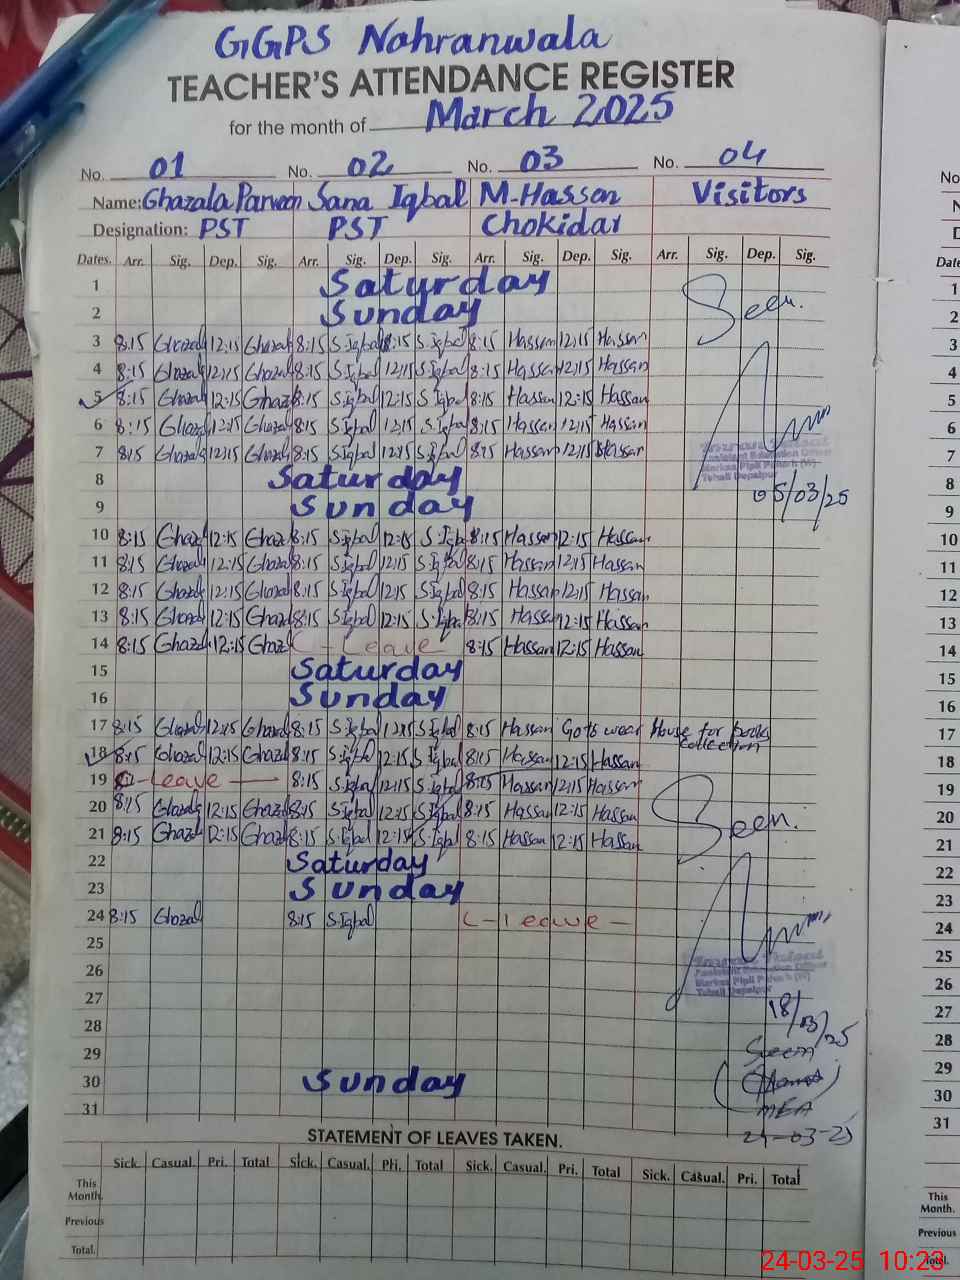 GGPS Nahranwala
TEACHER'S ATTENDANCE REGISTER
for the month of March 2025
No. 01 No. 02 No. 03 No. 04
Name: Ghazala Parveen Sana Iqbal M-Hassan Visitors
Designation: PST PST Chokidar
Dates. Arr. Sig. Dep. Sig. Arr. Sig. Dep. Sig. Arr. Sig. Dep. Sig. Arr. Sig. Dep. Sig.
1 Saturday Seen.
2 Sunday
3 8:15 Ghazal 12:15 Ghazal 8:15 S.Iqbal 8:15 S.Iqbal 8:15 Hassan 12:15 Hassan
4 8:15 Ghazal 12:15 Ghazal 8:15 S.Iqbal 12:15 S.Iqbal 8:15 Hassan 12:15 Hassan
5 8:15 Ghazal 12:15 Ghaz 8:15 S.Iqbal 12:15 S.Iqbal 8:15 Hassan 12:15 Hassan
6 8:15 Ghazal 12:15 Ghazal 8:15 S.Iqbal 12:15 S.Iqbal 8:15 Hassan 12:15 Hassan
7 8:15 Ghazal 12:15 Ghazal 8:15 S.Iqbal 12:15 S.Iqbal 8:15 Hassan 12:15 Hassan
Markaz Pipli Pahar (W)
Tehsil Depalpur
8 Saturday 05/03/25
9 Sunday
10 8:15 Ghazal 12:15 Ghaz 8:15 S.Iqbal 12:15 S.Iqb 8:15 Hassan 12:15 Hassan
11 8:15 Ghazal 12:15 Ghazal 8:15 S.Iqbal 12:15 S.Iqbal 8:15 Hassan 12:15 Hassan
12 8:15 Ghazal 12:15 Ghazal 8:15 S.Iqbal 12:15 S.Iqbal 8:15 Hassan 12:15 Hassan
13 8:15 Ghazal 12:15 Ghaza 8:15 S.Iqbal 12:15 S.Iqba 8:15 Hassan 12:15 Hassan
14 8:15 Ghazal 12:15 Ghaz C-Leave 8:15 Hassan 12:15 Hassan
15 Saturday
16 Sunday
17 8:15 Ghazal 12:15 Ghazal 8:15 S.Iqbal 12:15 S.Iqbal 8:15 Hassan Go to wear House for books
collection
18 8:15 Ghazal 12:15 Ghazal 8:15 S.Iqbal 12:15 S.Iqbal 8:15 Hassan 12:15 Hassan
19 C-Leave 8:15 S.Iqbal 12:15 S.Iqbal 8:15 Hassan 12:15 Hassan
20 8:15 Ghazal 12:15 Ghazal 8:15 S.Iqbal 12:15 S.Iqbal 8:15 Hassan 12:15 Hassan Seen.
21 8:15 Ghazal 12:15 Ghazal 8:15 S.Iqbal 12:15 S.Iqbal 8:15 Hassan 12:15 Hassan
22 Saturday
23 Sunday
24 8:15 Ghazal 8:15 S.Iqbal C-Leave-
25
26
Tehsil Depalpur
27 18/03/25
28
29 Seen
30 Sunday
31 MEA
24-03-25
STATEMENT OF LEAVES TAKEN.
Sick. Casual. Pri. Total Sick. Casual. Pri. Total Sick. Casual. Pri. Total Sick. Casual. Pri. Total
This Month.
Previous
Total.
No
Date
1
2
3
4
5
6
7
8
9
10
11
12
13
14
15
16
17
18
19
20
21
22
23
24
25
26
27
28
29
30
31
This
Month.
Previous
Total.
24-03-25 10:23